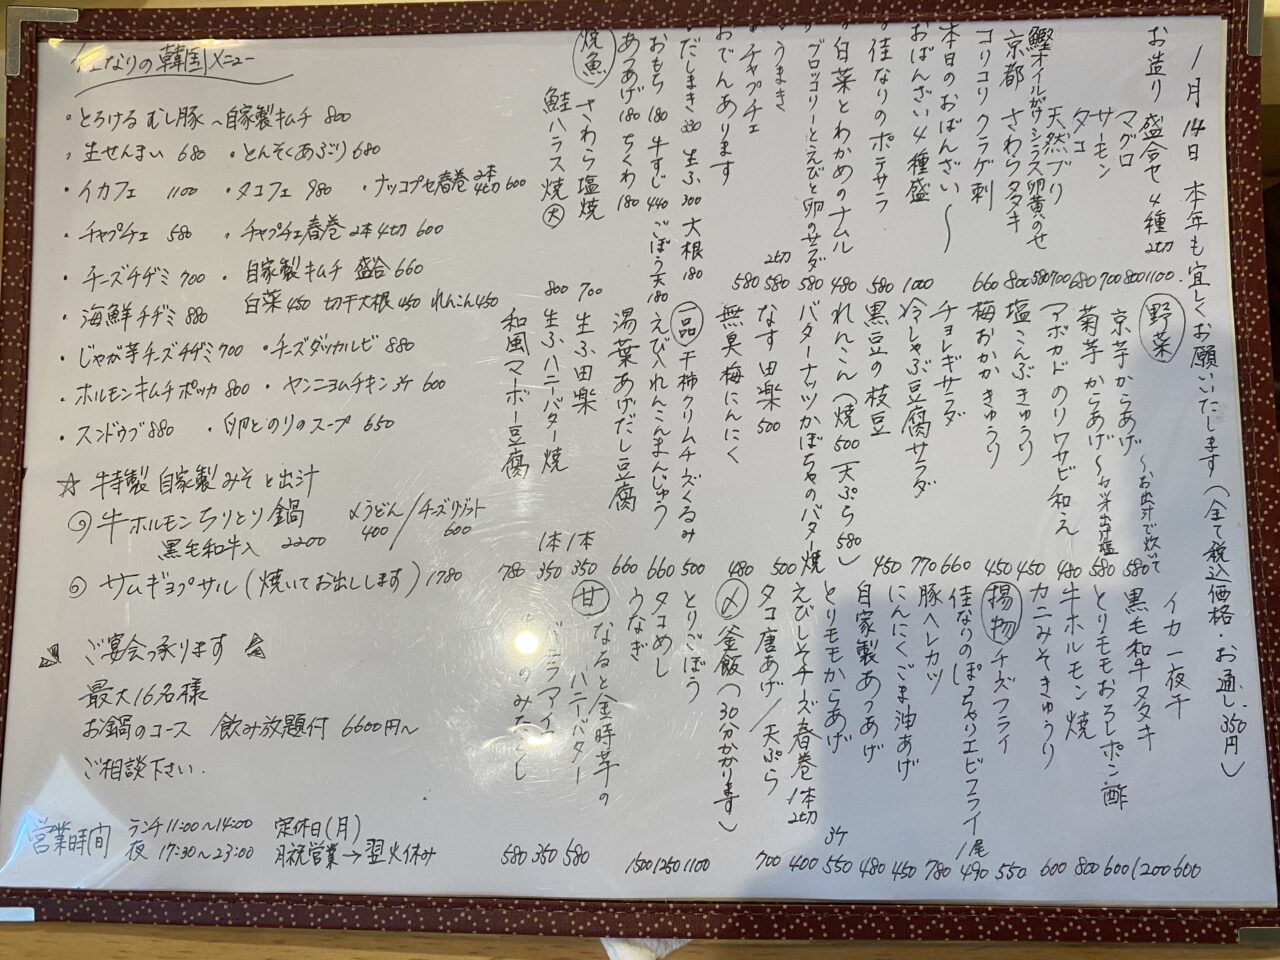 1月14日 本年も宜しくお願いいたします(全て税込価格・お通し350円)
お造り 盛合せ4種 2切 1100
マグロ 800
サーモン 700
タコ 680
天然ブリ 700
鰹オイルがけシラス卵黄のせ 580
京都 さわらタタキ 800
コリコリクラゲ刺 660
本日のおばんざい〜
おばんざい4種盛 1000
佳なりのポテサラ 580
白菜とわかめのナムル 480
ブロッコリーとえびと卵のサラダ 580
うまき 2切 580
チャプチェ 580
おでんあります
だしまき 330 生ふ 300 大根 180
おもち 180 牛すじ 440 ごぼう天 180
あつあげ 180 ちくわ 180
焼魚 さわら塩焼 700
鮭ハラス焼 大 800
野菜
京芋からあげ 〜お出汁で炊いて 580
菊芋からあげ 580
アボカドのりワサビ和え 480
塩こんぶきゅうり 450
梅おかかきゅうり 450
チョレギサラダ 660
冷しゃぶ豆腐サラダ 770
黒豆の枝豆 450
れんこん(焼500 天ぷら580)
バターナッツかぼちゃのバター焼 500
なす田楽 500
無臭梅にんにく 480
一品 干柿クリームチーズくるみ 500
えび入れんこんまんじゅう 660
湯葉あげだし豆腐 660
生ふ田楽 1本 350
生ふハニーバター焼 1本 350
和風マーボー豆腐 780
イカ一夜干 600
黒毛和牛タタキ 1200
とりモモおろしポン酢 600
牛ホルモン焼 800
カニみそきゅうり 600
揚物 チーズフライ 550
佳なりのぽっちゃりエビフライ 1尾 490
豚ヘレカツ 780
にんにくごま油あげ 450
自家製あつあげ 480
とりモモからあげ 3ケ 550
えびしそチーズ春巻 1本2切 400
タコ唐あげ/天ぷら 700
〆 釜飯(30分かかります)
とりごぼう 1100
タコめし 1250
うなぎ 1500
甘 なると金時芋のハニーバター 580
バニラアイス 350
のみたらし 580
佳なりの韓国メニュー
・とろけるむし豚〜自家製キムチ 800
・生せんまい 680 ・とんそくあぶり 680
・イカフェ 1100 ・タコフェ 980 ・ナッコプセ春巻 2本4切 600
・チャプチェ 580 ・チャプチェ春巻 2本4切 600
・チーズチヂミ 700 ・自家製キムチ 盛合 660
・海鮮チヂミ 880 白菜 450 切干大根 450 れんこん 450
・じゃが芋チーズチヂミ 700 ・チーズダッカルビ 880
・ホルモンキムチポッカ 800 ・ヤンニョムチキン 3ケ 600
・スンドゥブ 880 ・卵とのりのスープ 650
☆ 牛特製 自家製みそと出汁
◎牛ホルモンちりとり鍋 〆うどん 400/チーズリゾット 600
黒毛和牛入 2200
◎サムギョプサル(焼いてお出しします) 1780
ご宴会承ります
最大16名様
お鍋のコース 飲み放題付 6600円〜
ご相談下さい.
営業時間 ランチ11:00〜14:00 定休日(月)
夜 17:30〜23:00 月祝営業→翌火休み